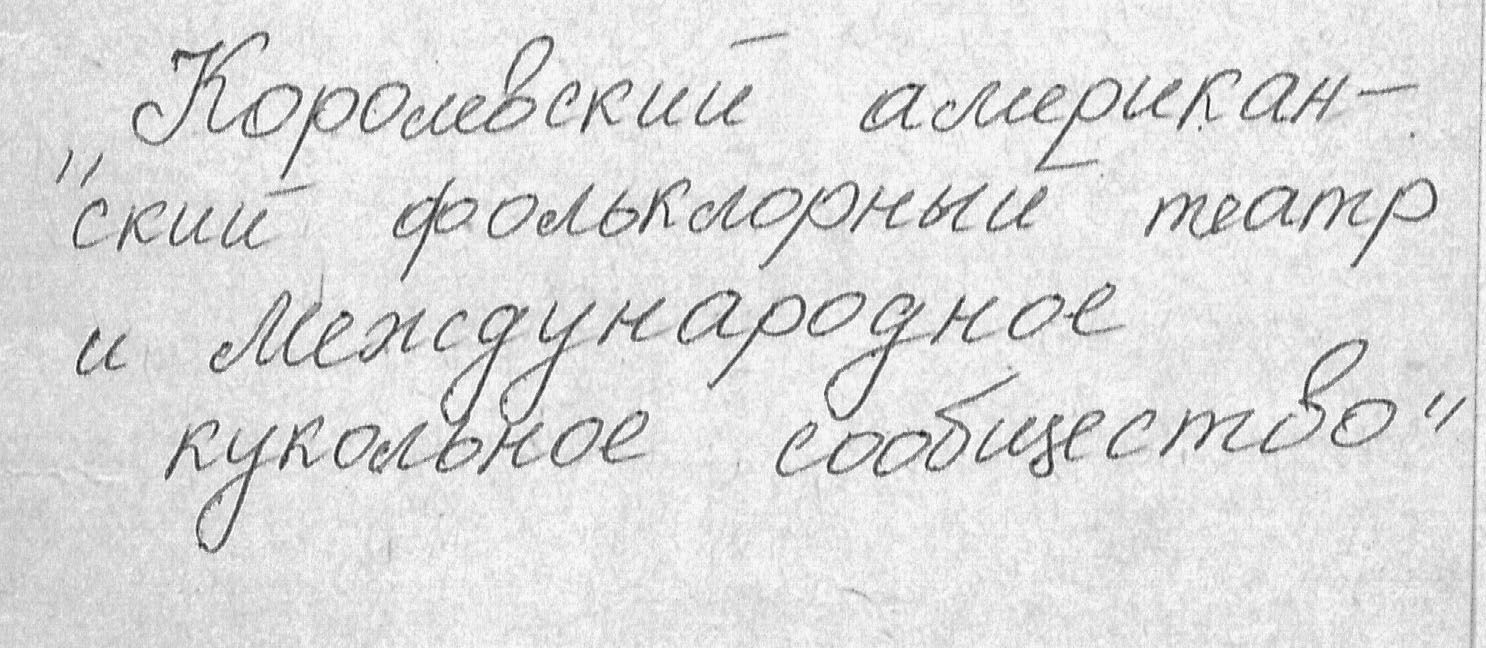 „Королевский американ-
ский фольклорный театр
и Международное
кукольное сообщество“